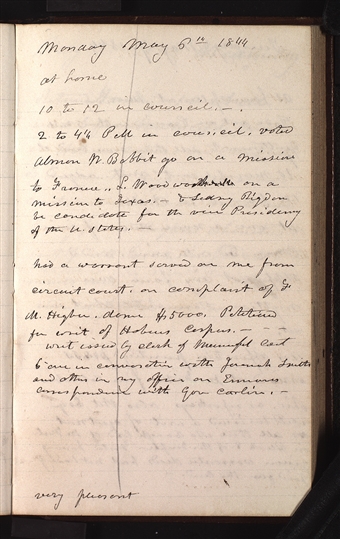 Monday May 6th 1844
at home
10 to 12 in council. —.
2 to 4¼ P M in council. voted
Almon W. Babbit go on a mission
to France., L. Woodworth on a
mission to Texas. — & Sidny Rigdon
be candidate for the vice Presidency
of the U. states. —
had a warrant served on me from
circuit court. on complaint of F.
M. Higbee. damr $5000. Petitiond
for writ of Habeus Corpus. — —
writ issued by clerk of Municipal Court
6 in conversation with Jeremiah Smith
and others in my office on
correspondence with Gov Carlin. —
very pleasant